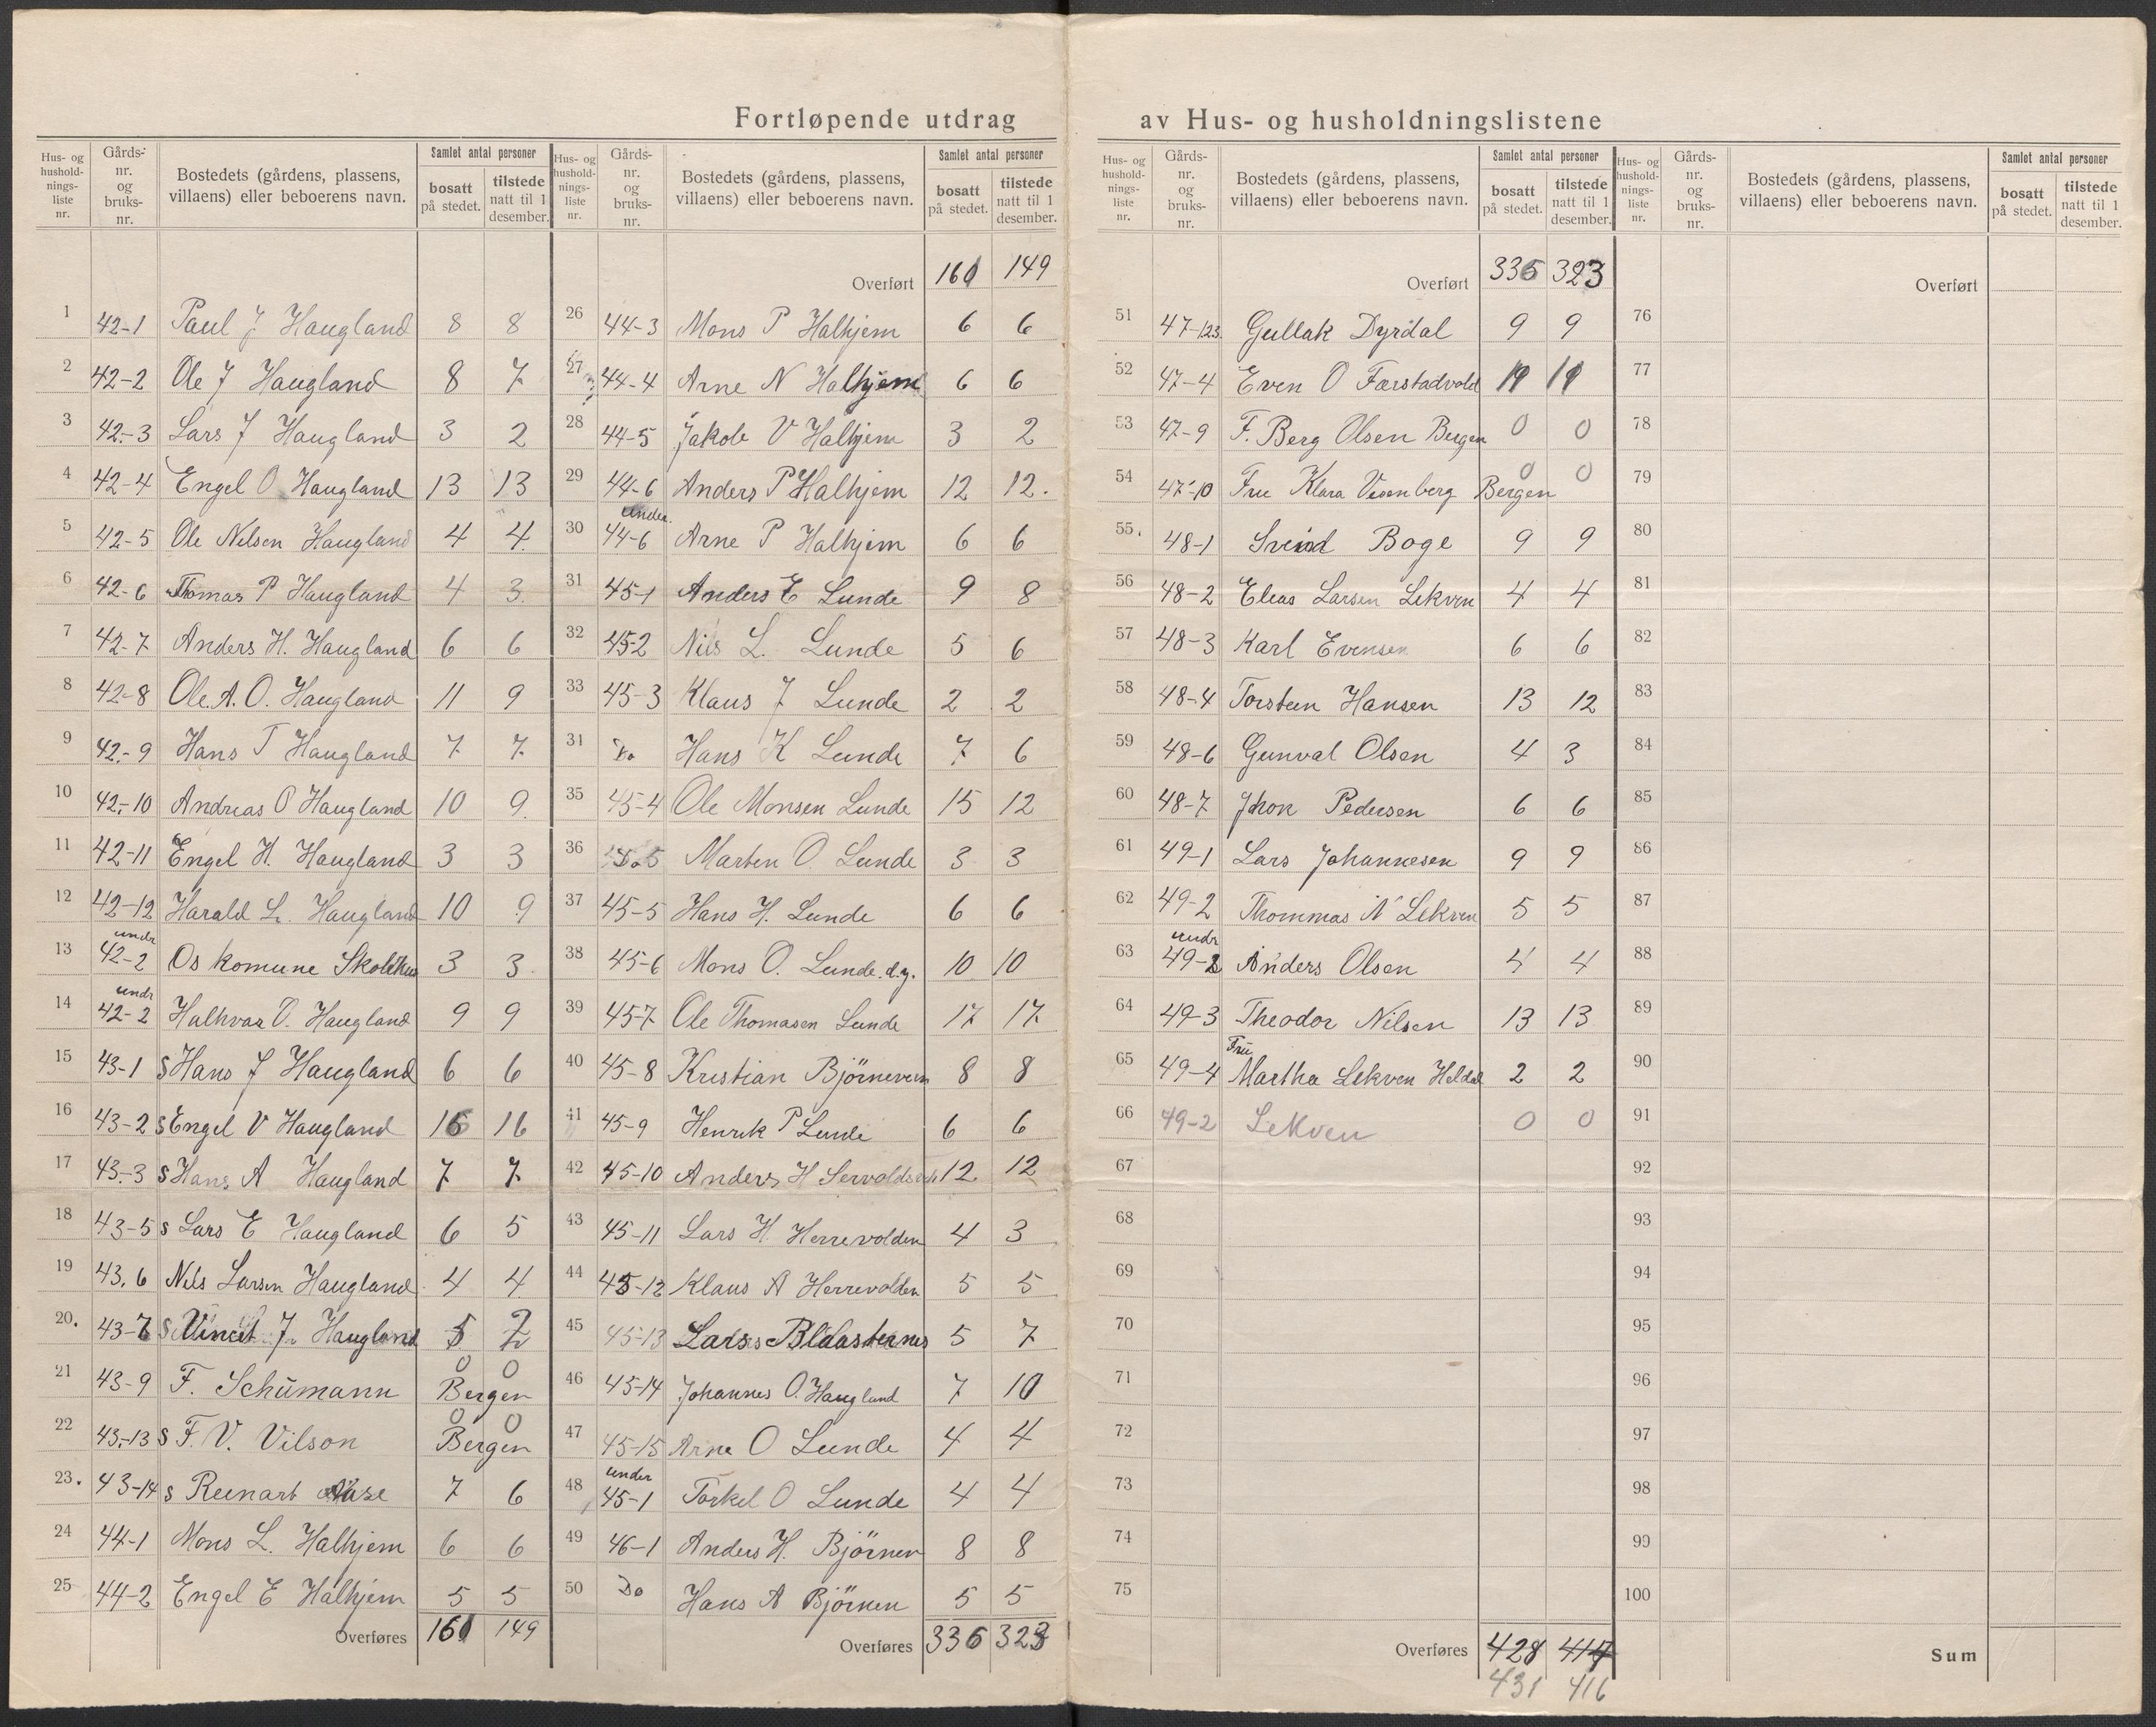 Fortløpende utdrag av Hus- og husholdningslistene
Hus- og husholdnings- liste nr. | Gårds- nr. og bruks- nr. | Bostedets (gårdens, plassens, villaens) eller beboerens navn. | Samlet antal personer | bosatt på stedet. | tilstede natt til 1 desember.
1 42-1 Paul J Haugland 8 8
2 42-2 Ole J Haugland 8 7
3 42-3 Lars J Haugland 3 2
4 42-4 Engel O Haugland 13 13
5 42-5 Ole Nilsen Haugland 4 4
6 42-6 Thomas P Haugland 4 3
7 42-7 Anders H. Haugland 6 6
8 42-8 Ole. A. O. Haugland 11 9
9 42-9 Hans T Haugland 7 7
10 42-10 Andreas O Haugland 10 9
11 42-11 Engel H. Haugland 3 3
12 42-12 Harald L. Haugland 10 9
13 undr 42-2 Os komune Skolehus 3 3
14 undr 42-2 Halhvar O. Haugland 9 9
15 43-1 S Hans J Haugland 6 6
16 43-2 S Engel V Haugland 16 16
17 43-3 S Hans A Haugland 7 7
18 43-5 s Lars E Haugland 6 5
19 43.6 Nils Larsen Haugland 4 4
20. 43-7 S J. Haugland 5 2
21 43-9 F. Schümann 0 0 Bergen
22 43-13 S F. V. Vilson 0 0 Bergen
23. 43-14 s Reinart 7 6
24 44-1 Mons L. Halhjem 6 6
25 44-2 Engel E Halhjem 5 5
Overføres 160 149
Hus- og husholdnings- liste nr. | Gårds- nr. og bruks- nr. | Bostedets (gårdens, plassens, villaens) eller beboerens navn. | Samlet antal personer | bosatt på stedet. | tilstede natt til 1 desember.
Overført 160 149
26 44-3 Mons P Halhjem 6 6
27 44-4 Arne N Halhjem 6 6
28 44-5 Jakob V Halhjem 3 2
29 44-6 Anders P Halhjem 12 12.
30 under 44-6 Arne P Halhjem 6 6
31 45-1 Anders E Lunde 9 8
32 45-2 Nils L. Lunde 5 6
33 45-3 Klaus J Lunde 2 2
31 Do Hans K Lunde 7 6
35 45-4 Ole Monsen Lunde 15 12
36 Marten O. Lunde 3 3
37 45-5 Hans H. Lunde 6 6
38 45-6 Mons O. Lunde. d.y. 10 10
39 45-7 Ole Thomasen Lunde 17 17
40 45-8 Kristian Björneven 8 8
41 45-9 Henrik P Lunde 6 6
42 45-10 Anders H 12 12
43 45-11 Lars H Herrevolden 4 3
44 45-12 Klaus A Herrevolden 5 5
45 45-13 Lars 5 7
46 45-14 Johannes O. Haugland 7 10
47 45-15 Arne O Lunde 4 4
48 under 45-1 Torkel O Lunde 4 4
49 46-1 Anders H. Björnen 8 8
50 Do Hans A Björnen 5 5
Overføres 336 323
Hus- og husholdnings- liste nr. | Gårds- nr. og bruks- nr. | Bostedets (gårdens, plassens, villaens) eller beboerens navn. | Samlet antal personer | bosatt på stedet. | tilstede natt til 1 desember.
Overført 336 323
51 47-123. Gullak Dyrdal 9 9
52 47-4 Even O Færstadvold
53 47-9 F. Berg Olsen Bergen 0 0
54 47-10 Fru Klara Bergen 0 0
55. 48-1 Sveind Boge 9 9
56 48-2 Eleas Larsen Lekven 4 4
57 48-3 Karl Evensen 6 6
58 48-4 Torstein Hansen 13 12
59 48-6 Gunval Olsen 4 3
60 48-7 Jhon Pedersen 6 6
61 49-1 Lars Johannesen 9 9
62 49-2 Thommas N Lekven 5 5
63 undr 49-2 Anders Olsen 4 4
64 49-3 Theodor Nilsen 13 13
65 49-4 Fru Martha Lekven Heldal 2 2
66 49-2 Lekven 0 0
67
68
69
70
71
72
73
74
75
Overføres 428 414
431 416
Hus- og husholdnings- liste nr. | Gårds- nr. og bruks- nr. | Bostedets (gårdens, plassens, villaens) eller beboerens navn. | Samlet antal personer | bosatt på stedet. | tilstede natt til 1 desember.
Overført
76
77
78
79
80
81
82
83
84
85
86
87
88
89
90
91
92
93
94
95
96
97
98
99
100
Sum